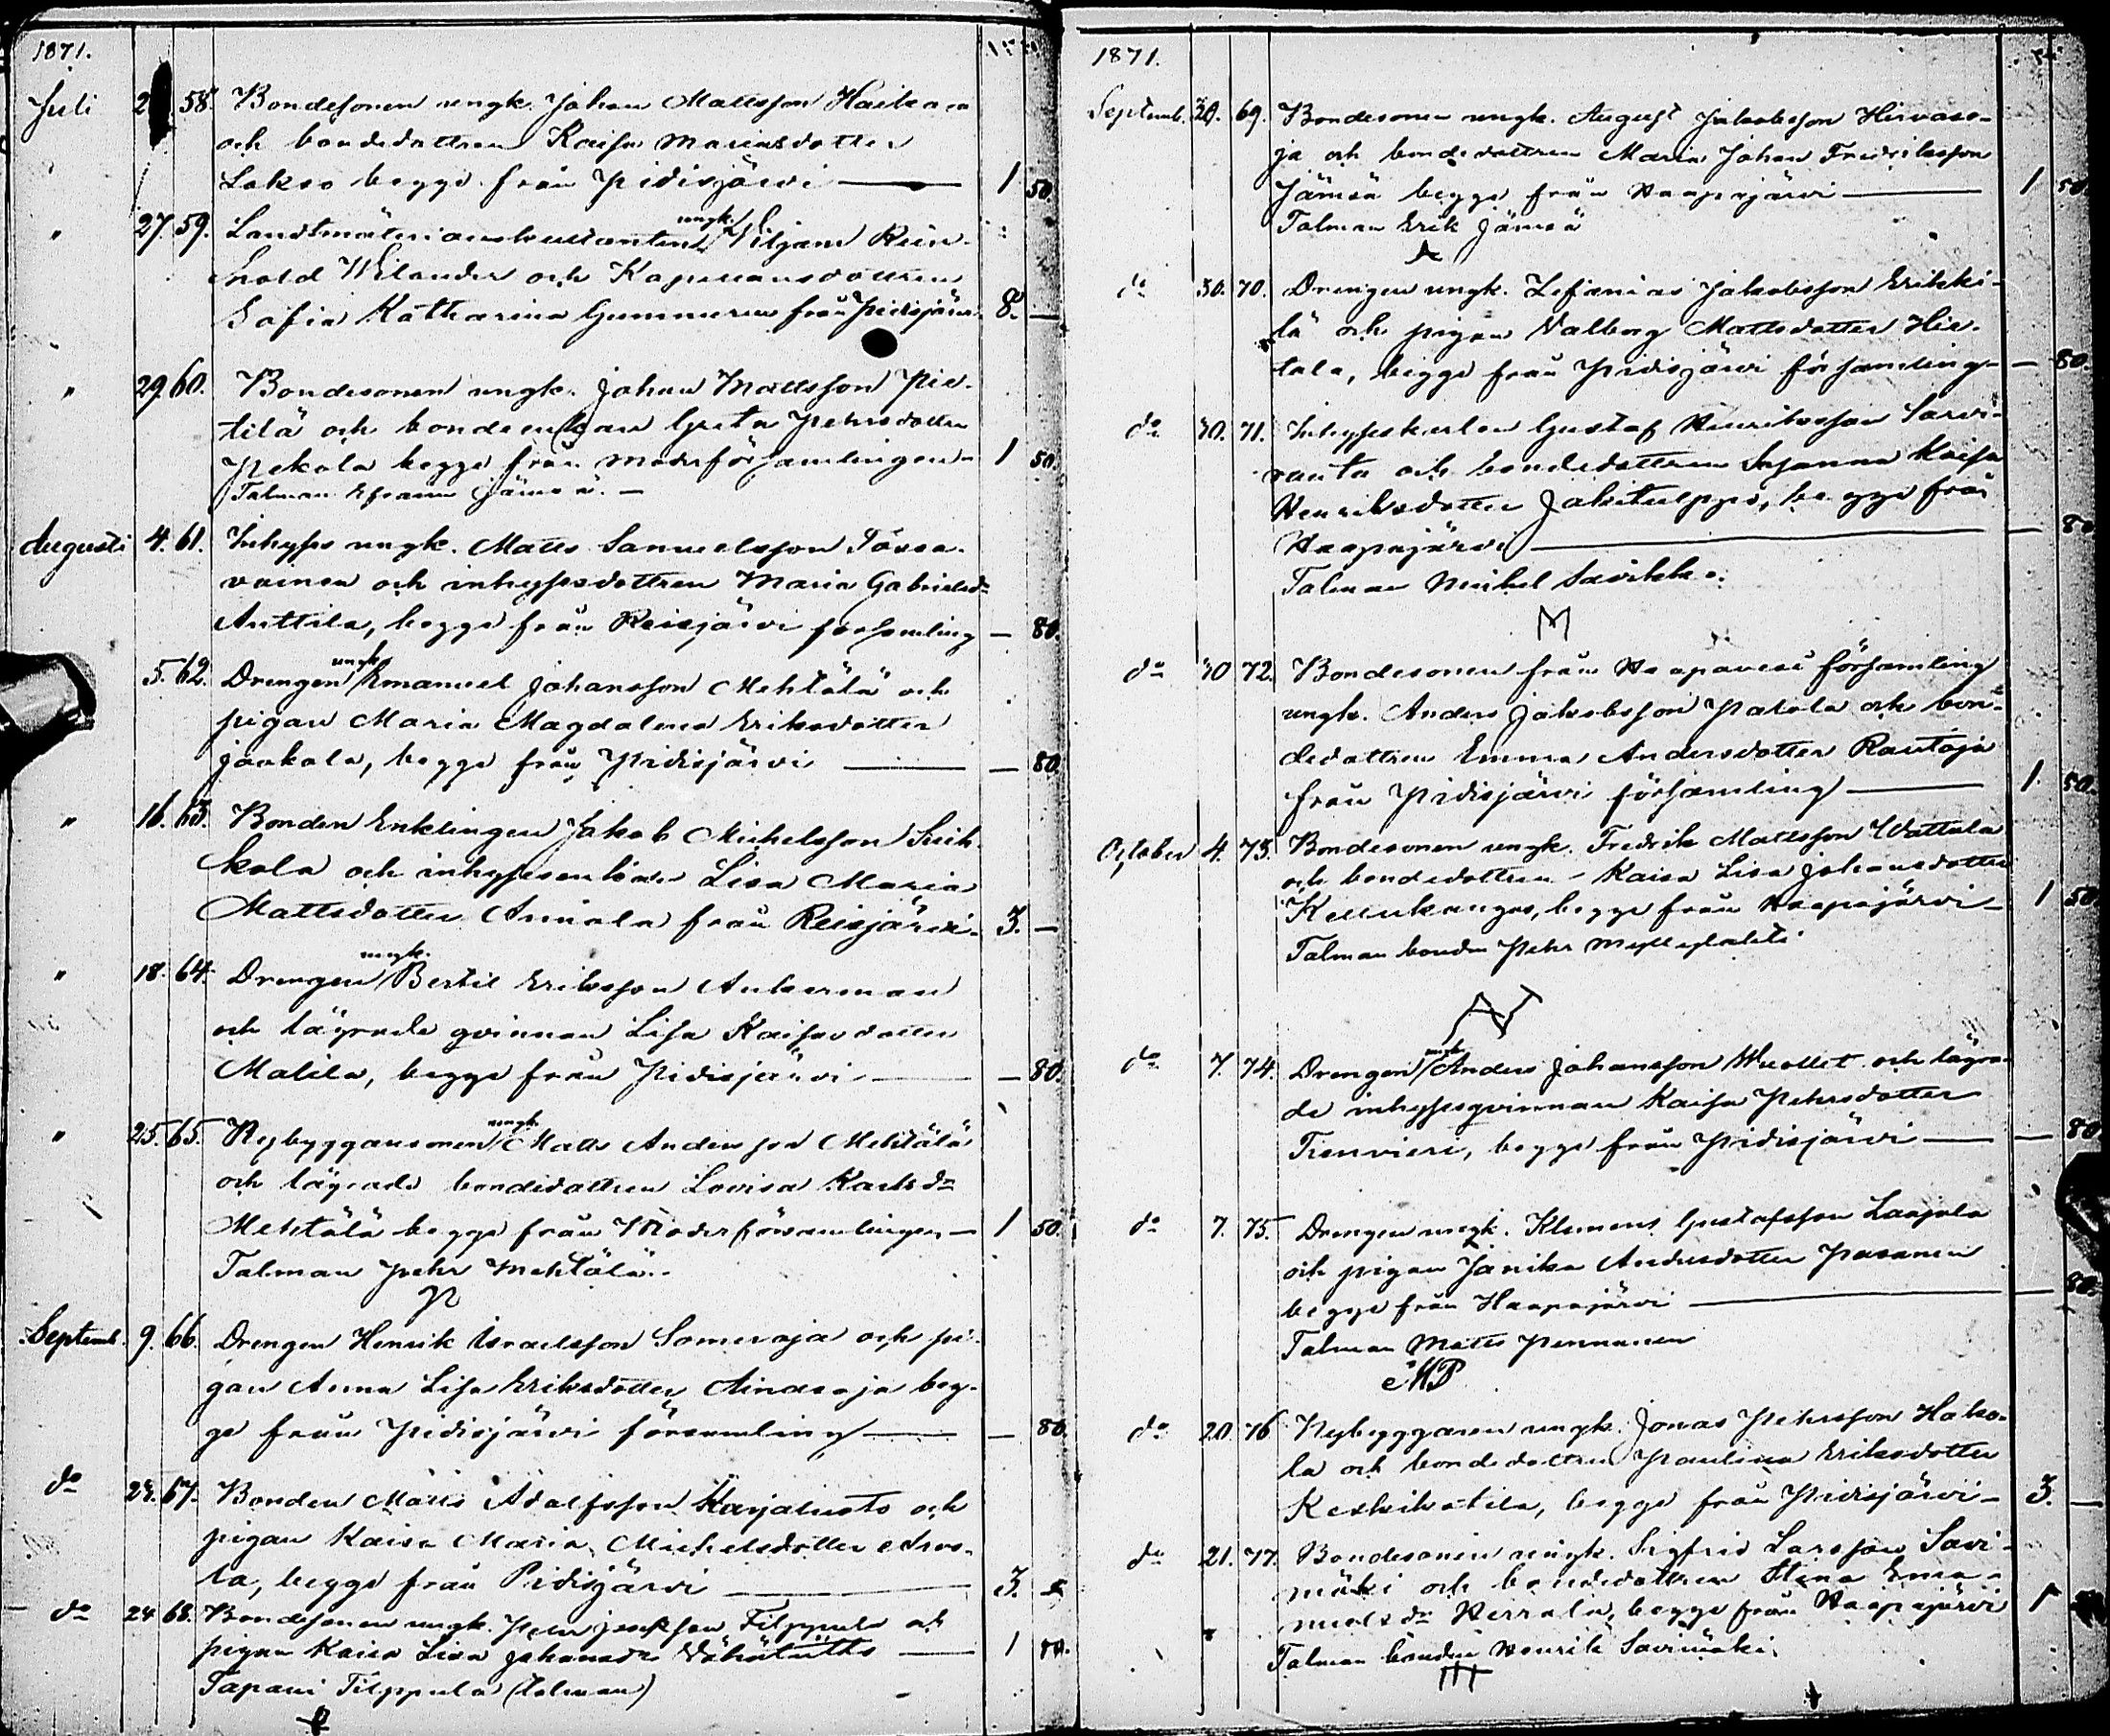 1871.
Juli 2 58. Bondesonen ungk. Johan Mattsson Haikara
och bondedottren Kaisa Mariasdotter
Lakso begge från Pidisjärvi — 1 50.
" 27. 59. Landtmäteriauskultanten ungk. Viljam Rein-
hold Wilander och Kapellansdottren
Sofia Katharina Gummerus från Pidisjärvi 8. —
" 29. 60. Bondesonen ungk. Johan Mattsson Pie-
tilä och bondeenkan Greta Pehrsdotter
Pekola begge från moderförsamlingen — 1 50.
Talman Efraim Jämsä. —
Augusti 4. 61. Inhyses ungk. Matts Samuelsson Tössa-
vainen och inhysesdottren Maria Gabrielsdr
Anttila, begge från Reisjärvi församling — 80.
5. 62. Drengen ungk. Emanuel Johansson Mehtälä och
pigan Maria Magdalena Eriksdotter
Jaakola, begge från Pidisjärvi — — 80.
" 16. 63. Bonden Enklingen Jakob Michelsson
kola och inhysesenkan Lisa Maria
Mattsdotter Anniala från Reisjärvi. 3. —
" 18. 64. Drengen ungk. Bertil Eriksson Ankerman
och lägrade qvinnan Lisa Kaisasdotter
Malila, begge från Pidisjärvi — — 80.
" 25. 65. Nybyggaresonen ungk. Matts Andersson Mehtälä
och lägrade bondedottren Lovisa Karlsdr
Mehtälä begge från Moderförsamlingen — 1 50.
Talman Pehr Mehtälä.
Septemb. 9. 66. Drengen Henrik Israelsson Someroja och pi-
gan Anna Lisa Eriksdotter Ainasoja beg-
ge från Pidisjärvi församling — — 80.
do 23. 67. Bonden Matts Adolfsson Karjaluoto och
pigan Kaisa Maria Michelsdotter
la, begge från Pidisjärvi — 3.
do 24 68. Bondesonen ungk. Josefsson Filppula och
pigan Kaisa Lisa Johansdr Vähätiitto — 1
Tapani Filppula (talman)
1871.
Septemb. 30. 69. Bondesonen ungk. August Jakobsson Hirvaso-
ja och bondedottren Maria Johan Fredriksson
Jämsä begge från Haapajärvi — 1 50.
Talman Erik Jämsä
do 30. 70. Drengen ungk. Zefanias Jakobsson Erikki-
lä och pigan Valborg Mattsdotter Hie-
tala, begge från Pidisjärvi församling — — 80.
do 30. 71. Inhyseskarlen Gustaf Henriksson Sarvi-
ranta och bondedottren Susanna Kaisa
Henriksdotter Jakitulppo, begge från
Haapajärvi — 80
Talman Mickel Savikko.
M
do 30 72. Bondesonen från Haapavesi församling
ungk. Anders Jakobsson Patola och bon-
dedottren Emma Andersdotter Rautoja
från Pidisjärvi församling — 1. 50.
October 4. 73. Bondesonen ungk. Fredrik Mattsson Wattula
och bondedottren Kaisa Lisa Johansdotter
Kellukangas, begge från Haapajärvi — 1 50
Talman bonden Pehr Myllylahti
do 7. 74. Drengen ungk. Anders Johansson Wuollet och lägra-
de inhysesqvinnan Kaisa Pehrsdotter
Tienvieri, begge från Pidisjärvi — — 80.
do 7. 75. Drengen ungk. Klemens Gustafsson Laajala
och pigan Janika Andersdotter Pasanen
begge från Haapajärvi — 80.
Talman Matts Pennanen
MP
do 20. 76 Nybyggaren ungk. Jonas Pehrsson Hako-
la och bondedottren Paulina Eriksdotter
Keskikotila, begge från Pidisjärvi — 3. —
do 21. 77. Bondesonen ungk. Sigfrid Larsson Savi-
mäki och bondedottren Stina Ema-
nuelsdr Herrala, begge från Haapajärvi 1
Talman bonden Henrik Savimäki.